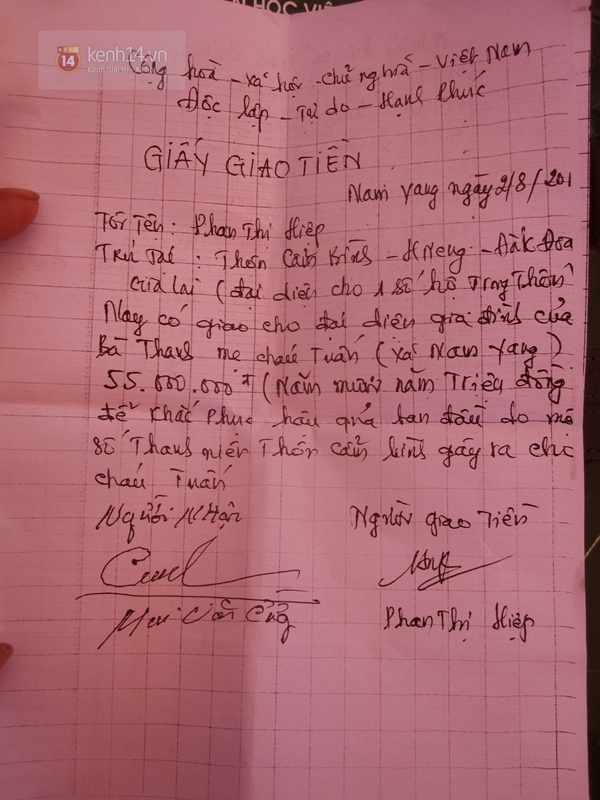 HỌC VIỆ
kenh14.vn
14
Cộng hoà - xã hội - chủ nghĩa - Việt Nam
Độc lập - Tự do - Hạnh Phúc
GIẤY GIAO TIỀN
Nam Yang ngày 2/8/201
Tôi Tên: Phan Thị Hiệp
Trú Tại: Thôn Cảnh Bình - HNeng - Đắk Đoa
Gia Lai (đại diện cho 1 số hộ Trong Thôn)
Nay có giao cho đại diện gia đình của
Bà Thanh mẹ cháu Tuấn (xã Nam Yang)
55.000.000đ (Năm mươi năm Triệu đồng
để Khắc Phục hậu quả ban đầu do mộ
số Thanh niên Thôn Cảnh bình gây ra cho
cháu Tuấn
Người Nhận
Người giao Tiền
Phan Thị Hiệp